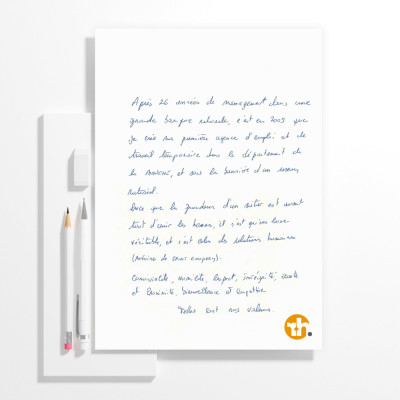 Après 26 années de management dans une
grande banque, c'est en 2009 que
je crée ma première agence d'emploi et de
travail temporaire dans le département de
la, et sous la bannière d'un réseau
national.
Parce que la grandeur d'un métier est avant
tout d'unir les hommes, il n'est qu'un luxe
véritable, et c'est celui des relations humaines
(Antoine de Saint Exupéry).
Convivialité, humilité, respect, intégrité, écoute
et proximité, bienveillance et empathie
Telles sont nos valeurs.
th.